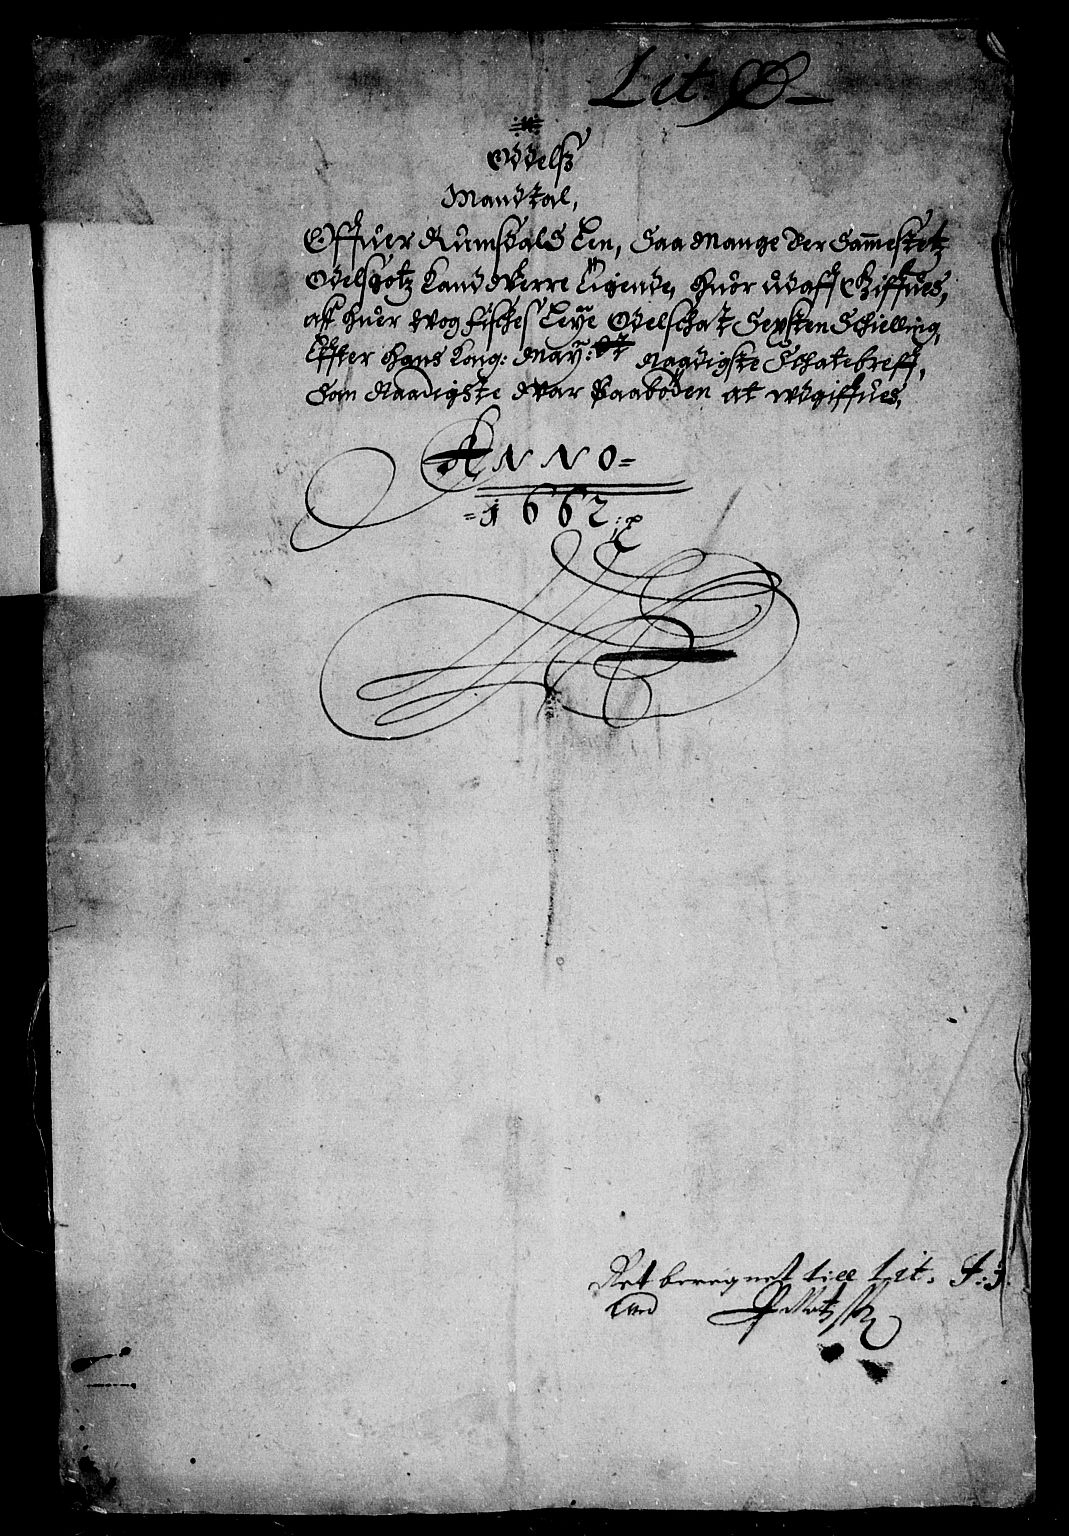 Lit.
Odelsz
Mandtal,
Offuer Rumsdals Len, Saa mange der Sammestetz
Odelsgotz Land verre Eigende, huor udaff Giffues,
aff huer Wog fisches Leye Odelschat Sexsten Schielling,
Effter Hans Kong: May: Naadigste Schatebreff,
Som Naadigste var Paaböden at wdgiffues,
ANNO
1662
Ret beregnet till Lit.